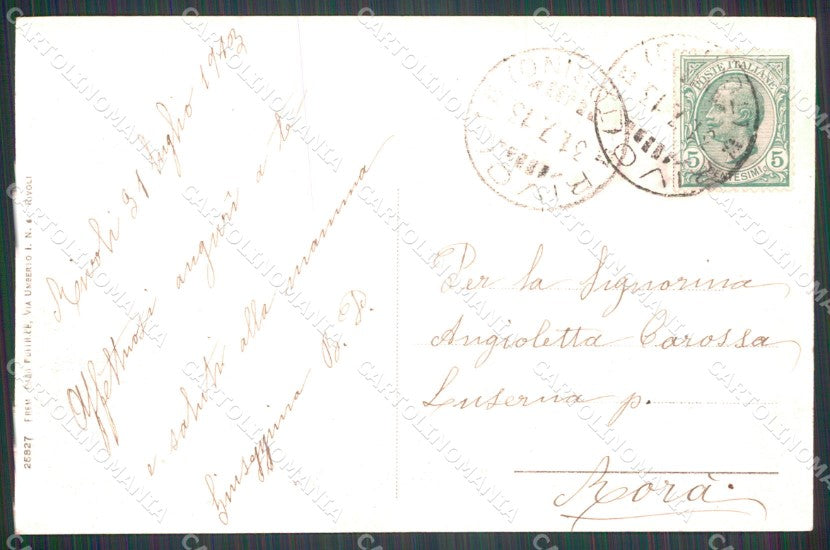 Rivoli 31 Luglio 1913
Affettuosi auguri a te
e saluti alla mamma
Giuseppina B. P.
Per la Signorina
Angioletta Carossa
Luserna p.
Rorà.
POSTE ITALIANE
5 5
CENTESIMI
RIVOLI (TORINO)
31.7.13
RIVOLI (TORINO)
25827
VIA UMBERTO I. N. RIVOLI
CARTOLINOMANIA